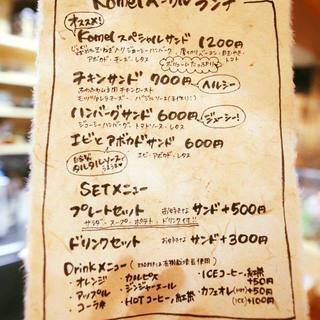 Komelベーグルランチ
オススメ!
Komelスペシャルサンド 1200円
アボカド・チーズ・レタス
ボリュームたっぷり
チキンサンド 700円 ヘルシー
ハンバーグサンド 600円 ジューシー!
ジューシーハンバーグ、トマトソース、レタス
エビとアボカドサンド 600円
タルタルソース エビ・アボカド・レタス
SETメニュー
プレートセット お好きな サンド+500円
サラダ・スープ・ポテト・ドリンク付!!
ドリンクセット お好きな サンド+300円
Drinkメニュー
・オレンジ ・カルピス ・ICEコーヒー、紅茶
+50円
・アップル ・ジンジャーエール ・カフェオレ(HOT)+50円
・コーラ ・HOTコーヒー、紅茶 (ICE)+100円